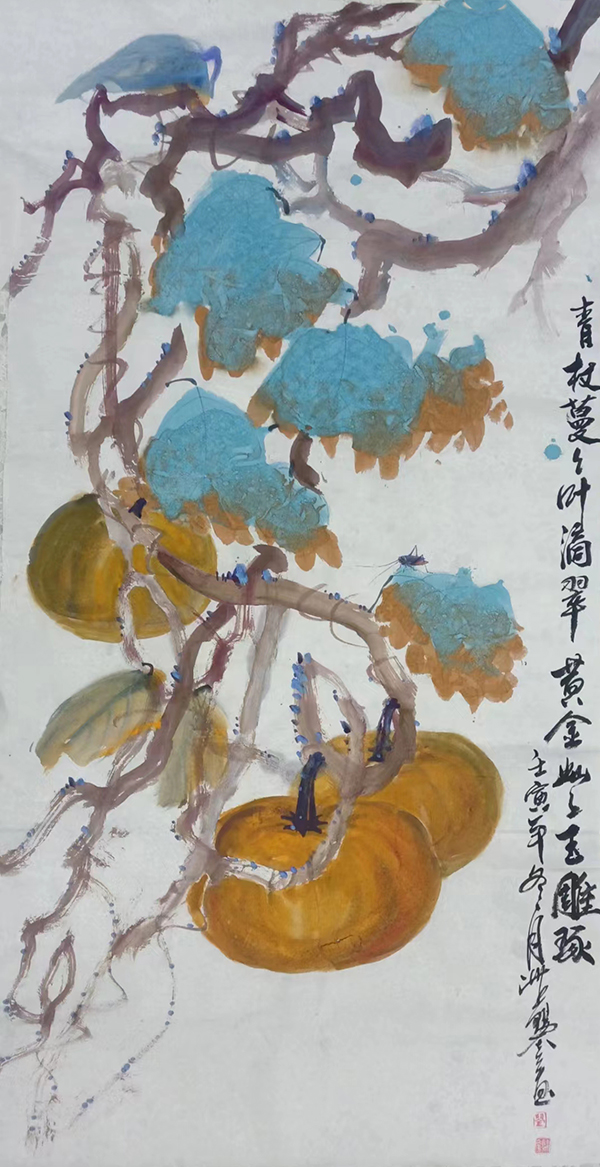 青枝蔓々叶滴翠 黄金灿々玉雕琢
壬寅年冬月